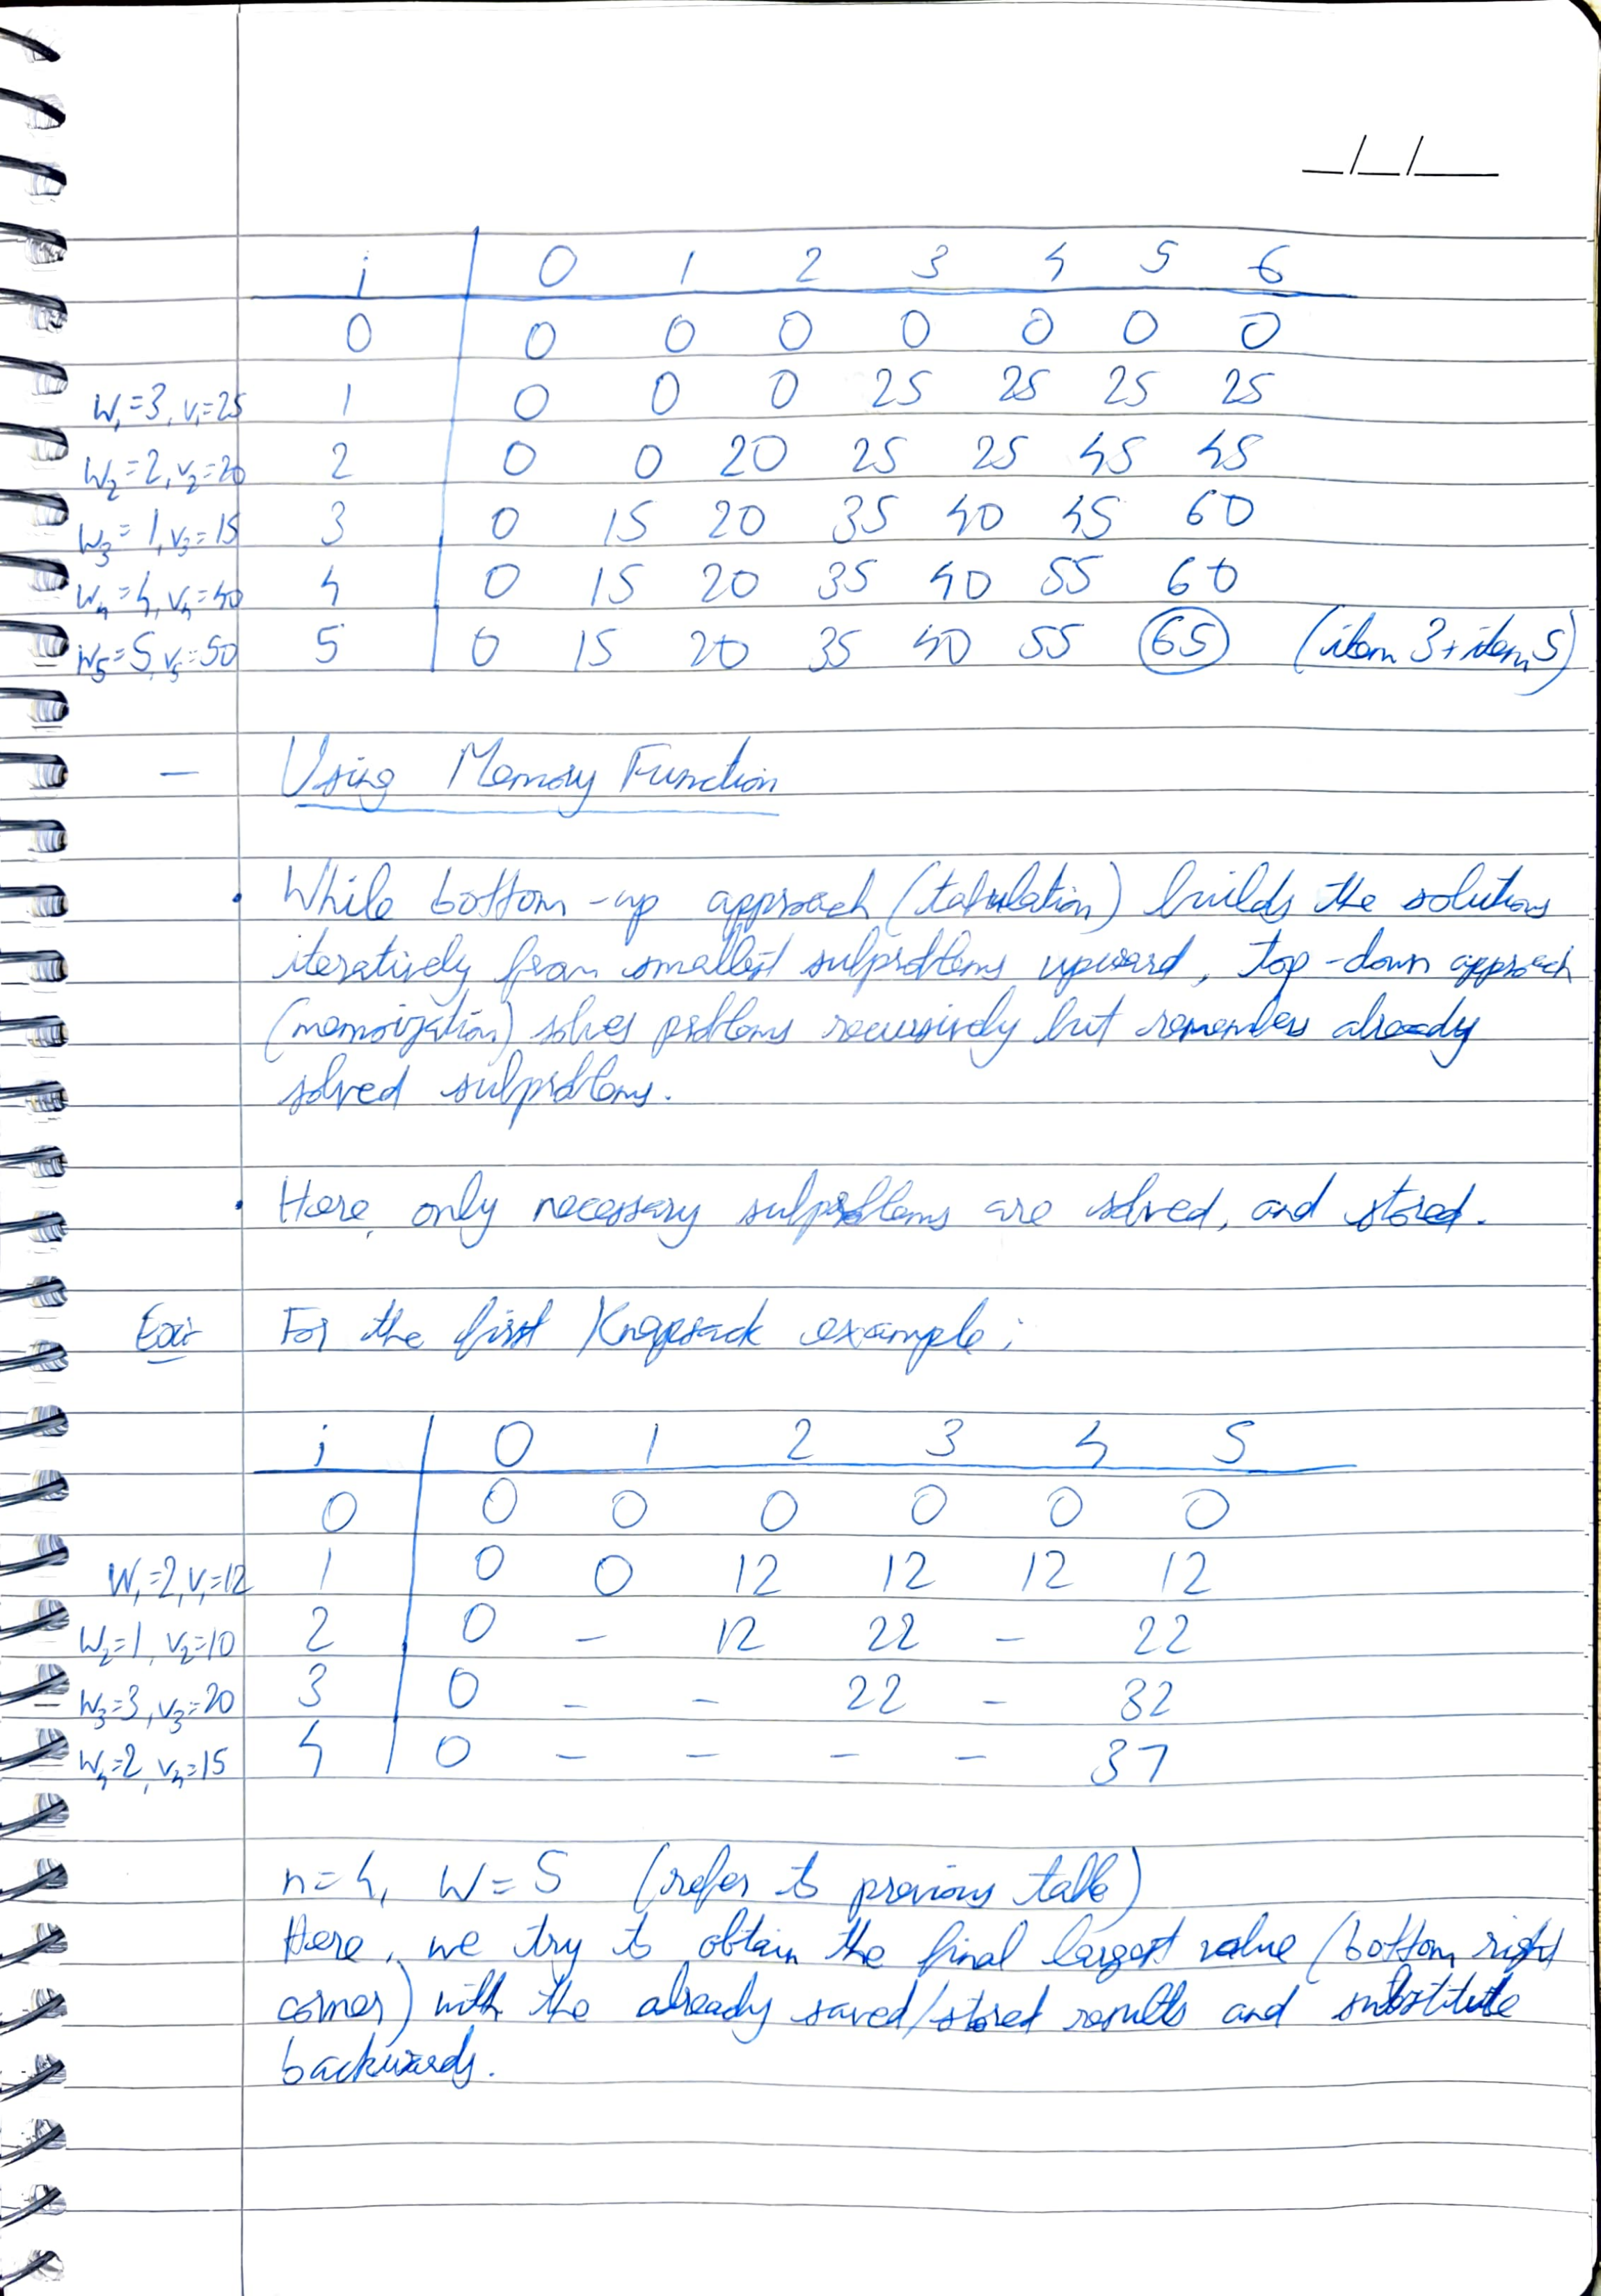 _/_/__
i 0 1 2 3 4 5 6
0 0 0 0 0 0 0 0
W₁=3, v₁=25 1 0 0 0 25 25 25 25
W₂=2, v₂=20 2 0 0 20 25 25 45 45
W₃=1, v₃=15 3 0 15 20 35 40 45 60
W₄=4, v₄=40 4 0 15 20 35 40 55 60
W₅=5, v₅=50 5 0 15 20 35 40 55 65 (item 3+item 5)
- Using Memory Function
• While bottom-up approach (tabulation) builds the solutions
iteratively from smallest subproblems upward, top-down approach
(memoization) solves problems recursively but remembers already
solved subproblems.
• Here, only necessary subproblems are solved, and stored.
Ex:- For the first Knapsack example:
i 0 1 2 3 4 5
0 0 0 0 0 0 0
W₁=2, v₁=12 1 0 0 12 12 12 12
W₂=1, v₂=10 2 0 - 12 22 - 22
- W₃=3, v₃=20 3 0 - - 22 - 32
W₄=2, v₄=15 4 0 - - - - 37
n=4, W=5 (refer to previous table)
Here, we try to obtain the final largest value (bottom right
corner) with the already saved/stored results and substitute
backwards.